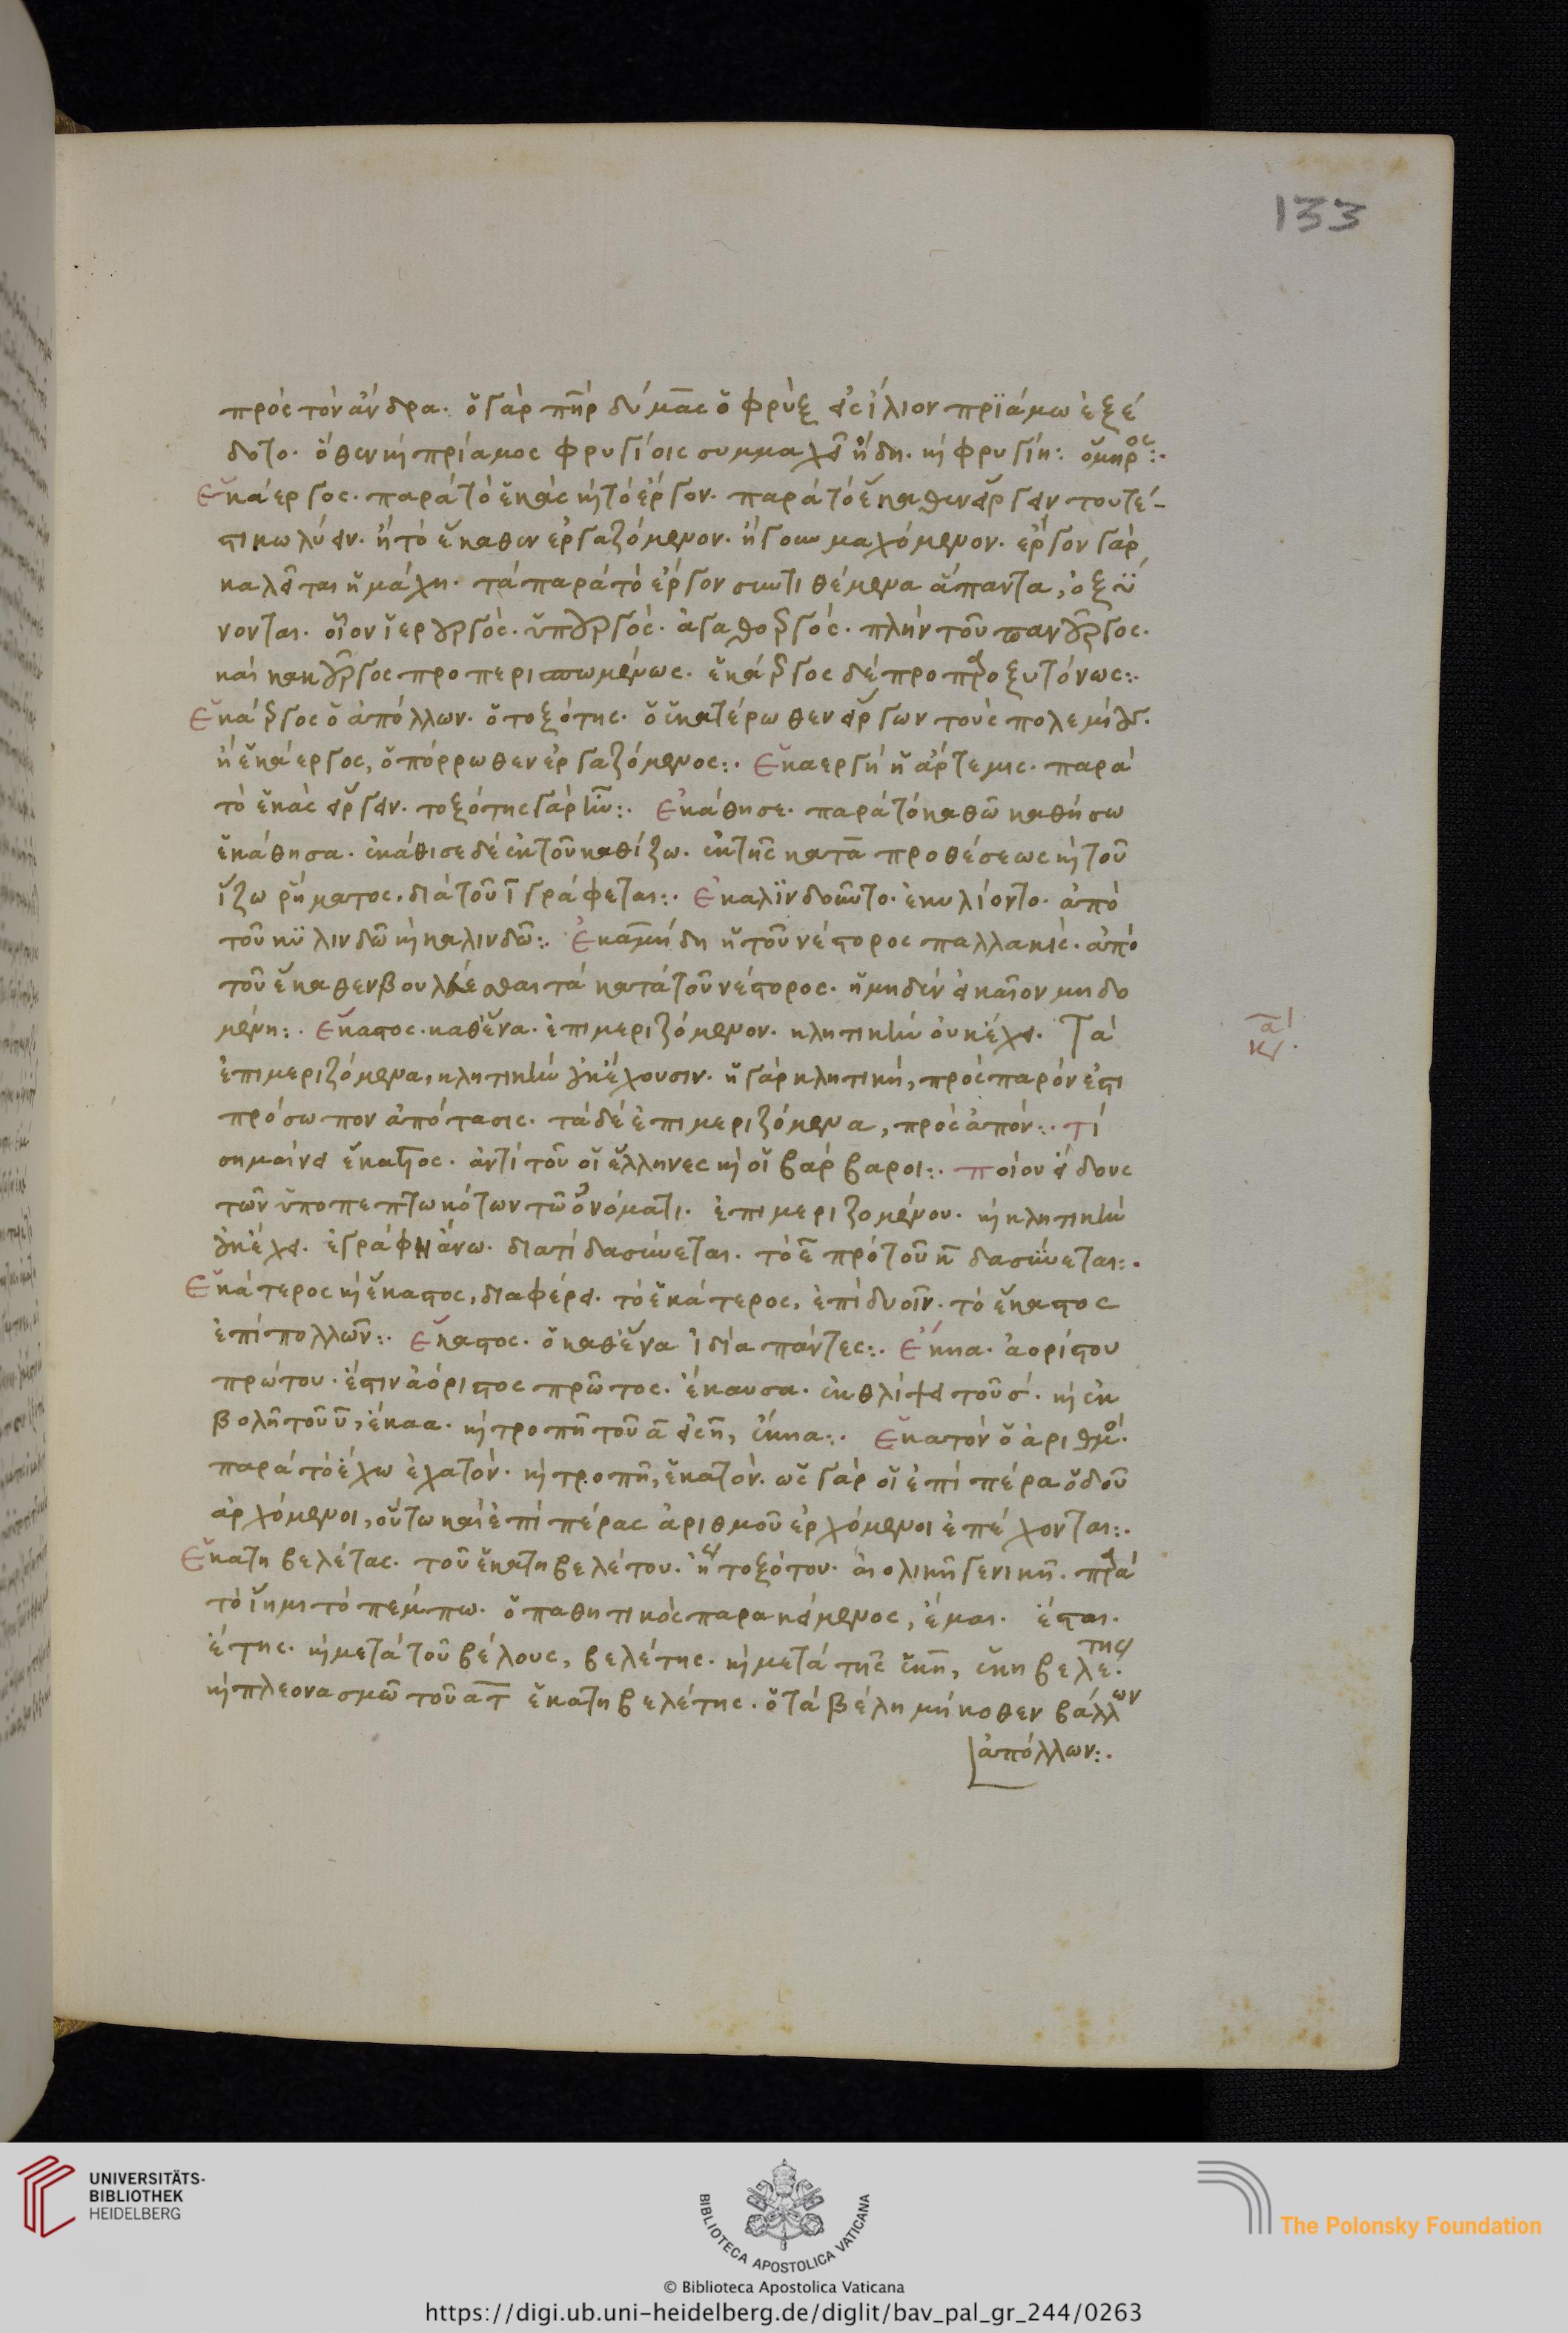 133
πρὸς τὸν ἄνδρα. ὁ γὰρ πη̅ρ δύμας ὁ φρὺξ εἰς ἴλιον πρϊάμω ἐξέ
δοτο. ὅθεν καὶ πρίαμος φρυγίοις συμμαχεῖ ἤδη. καὶ φρυγίη: ὅμηρος:.
Ἑκάεργος. παρὰ τὸ ἑκὰς καὶ τὸ ἔργον. παρὰ τὸ ἕκαθεν εἴργειν τουτέ-
στι κωλύειν. ἢ τὸ ἕκαθεν ἐργαζόμενον. ἤγουν μαχόμενον. ἔργον γὰρ
καλεῖται ἡ μάχη. τὰ παρὰ τὸ ἔργον συντιθέμενα ἅπαντα, ὀξϋ
νονται. οἷον ἱερουργός. ὑπουργός. ἀγαθοεργός. πλὴν τοῦ πανοῦργος.
καὶ κακοῦργος προπερισπωμένως. ἑκάεργος δὲ προπαροξυτόνως:.
Ἑκάεργος ὁ ἀπόλλων. ὁ τοξότης. ὁ ἑκατέρωθεν εἴργων τοὺς πολεμίους.
ἢ ἑκάεργος, ὁ πόρρωθεν ἐργαζόμενος:. Ἑκαεργὴ ἡ ἄρτεμις. παρὰ
τὸ ἑκὰς εἴργειν. τοξότης γὰρ ἦν:. Ἐκάθησε. παρὰ τὸ καθῶ καθήσω
ἐκάθησα. ἐκάθισε δὲ ἐκ τοῦ καθίζω. ἐκ τῆς κατα προθέσεως καὶ τοῦ
ἵζω ῥήματος. διὰ τοῦ ι̅ γράφεται:. Ἐκαλϊνδοῦντο. ἐκυλίοντο. ἀπὸ
τοῦ κϋλινδῶ καὶ καλινδῶ:. Ἑκαμήδη ἡ τοῦ νέστορος παλλακίς. ἀπὸ
τοῦ ἕκαθεν βουλεύεσθαι τὰ κατὰ τοῦ νέστορος. ἡ μηδὲν εἰκαῖον μηδο
μένη:. Ἕκαστος. καθ᾽ ἕνα. ἐπιμεριζόμενον. κλητικὴν οὐκ ἔχει. Τὰ
ἐπιμεριζόμενα, κλητικὴν οὐκ ἔχουσιν. ἡ γὰρ κλητικὴ, πρὸς παρόν ἐστι
πρόσωπον ἀπότασις. τὰ δὲ ἐπιμεριζόμενα, πρὸς ἀπόν:. τί
σημαίνει ἕκαστος. ἀντὶ τοῦ οἱ ἕλληνες καὶ οἱ βάρβαροι:. ποίου εἴδους
τῶν ὑποπεπτωκότων τῶ ὀνόματι. ἐπιμεριζομένου. καὶ κλητικὴν
οὐκ ἔχει. ἐγράφη ἄνω. διατί δασύνεται. τὸ ε̅ πρὸ τοῦ κ̅ δασύνεται:.
Ἑκάτερος καὶ ἕκαστος, διαφέρει. τὸ ἑκάτερος, ἐπὶ δυοῖν. τὸ ἕκαστος
ἐπὶ πολλῶν:. Ἕκαστος. ὁ καθ᾽ ἕνα ἰδία πάντες:. Ἔκηα. ἀορίστου
πρώτου. ἔστιν ἀόριστος πρῶτος. ἔκαυσα. ἐκθλίψει τοῦ σ. καὶ ἐκ
βολῆ τοῦ υ̅, ἔκαα. καὶ τροπῆ τοῦ α̅ εἰς η̅, ἔκηα:. Ἑκατὸν ὁ ἀριθμός.
παρὰ τὸ ἔχω ἐχατόν. καὶ τροπῆ, ἑκατόν. ὡς γὰρ οἱ ἐπὶ πέρα ὁδοῦ
ἀρχόμενοι, οὕτω καὶ ἐπὶ πέρας ἀριθμοῦ ἐρχόμενοι ἐπέχονται:.
Ἑκατηβελέτας. τοῦ ἑκατηβελέτου. ἢ τοξότου. αἰολικῆ γενικῆ. παρὰ
τὸ ἵημι τὸ πέμπω. ὁ παθητικὸς παρακείμενος, ἕμαι. ἕται.
ἕτης. καὶ μετὰ τοῦ βέλους, βελέτης. καὶ μετὰ τῆς ἑκη, ἑκηβελέτης.
καὶ πλεονασμῶ τοῦ ατ̅ ἑκατηβελέτης. ὁ τὰ βέλη μήκοθεν βάλλων
ἀπόλλων:.
UNIVERSITÄTS-
BIBLIOTHEK
HEIDELBERG
BIBLIOTECA APOSTOLICA VATICANA
The Polonsky Foundation
© Biblioteca Apostolica Vaticana
https://digi.ub.uni-heidelberg.de/diglit/bav_pal_gr_244/0263